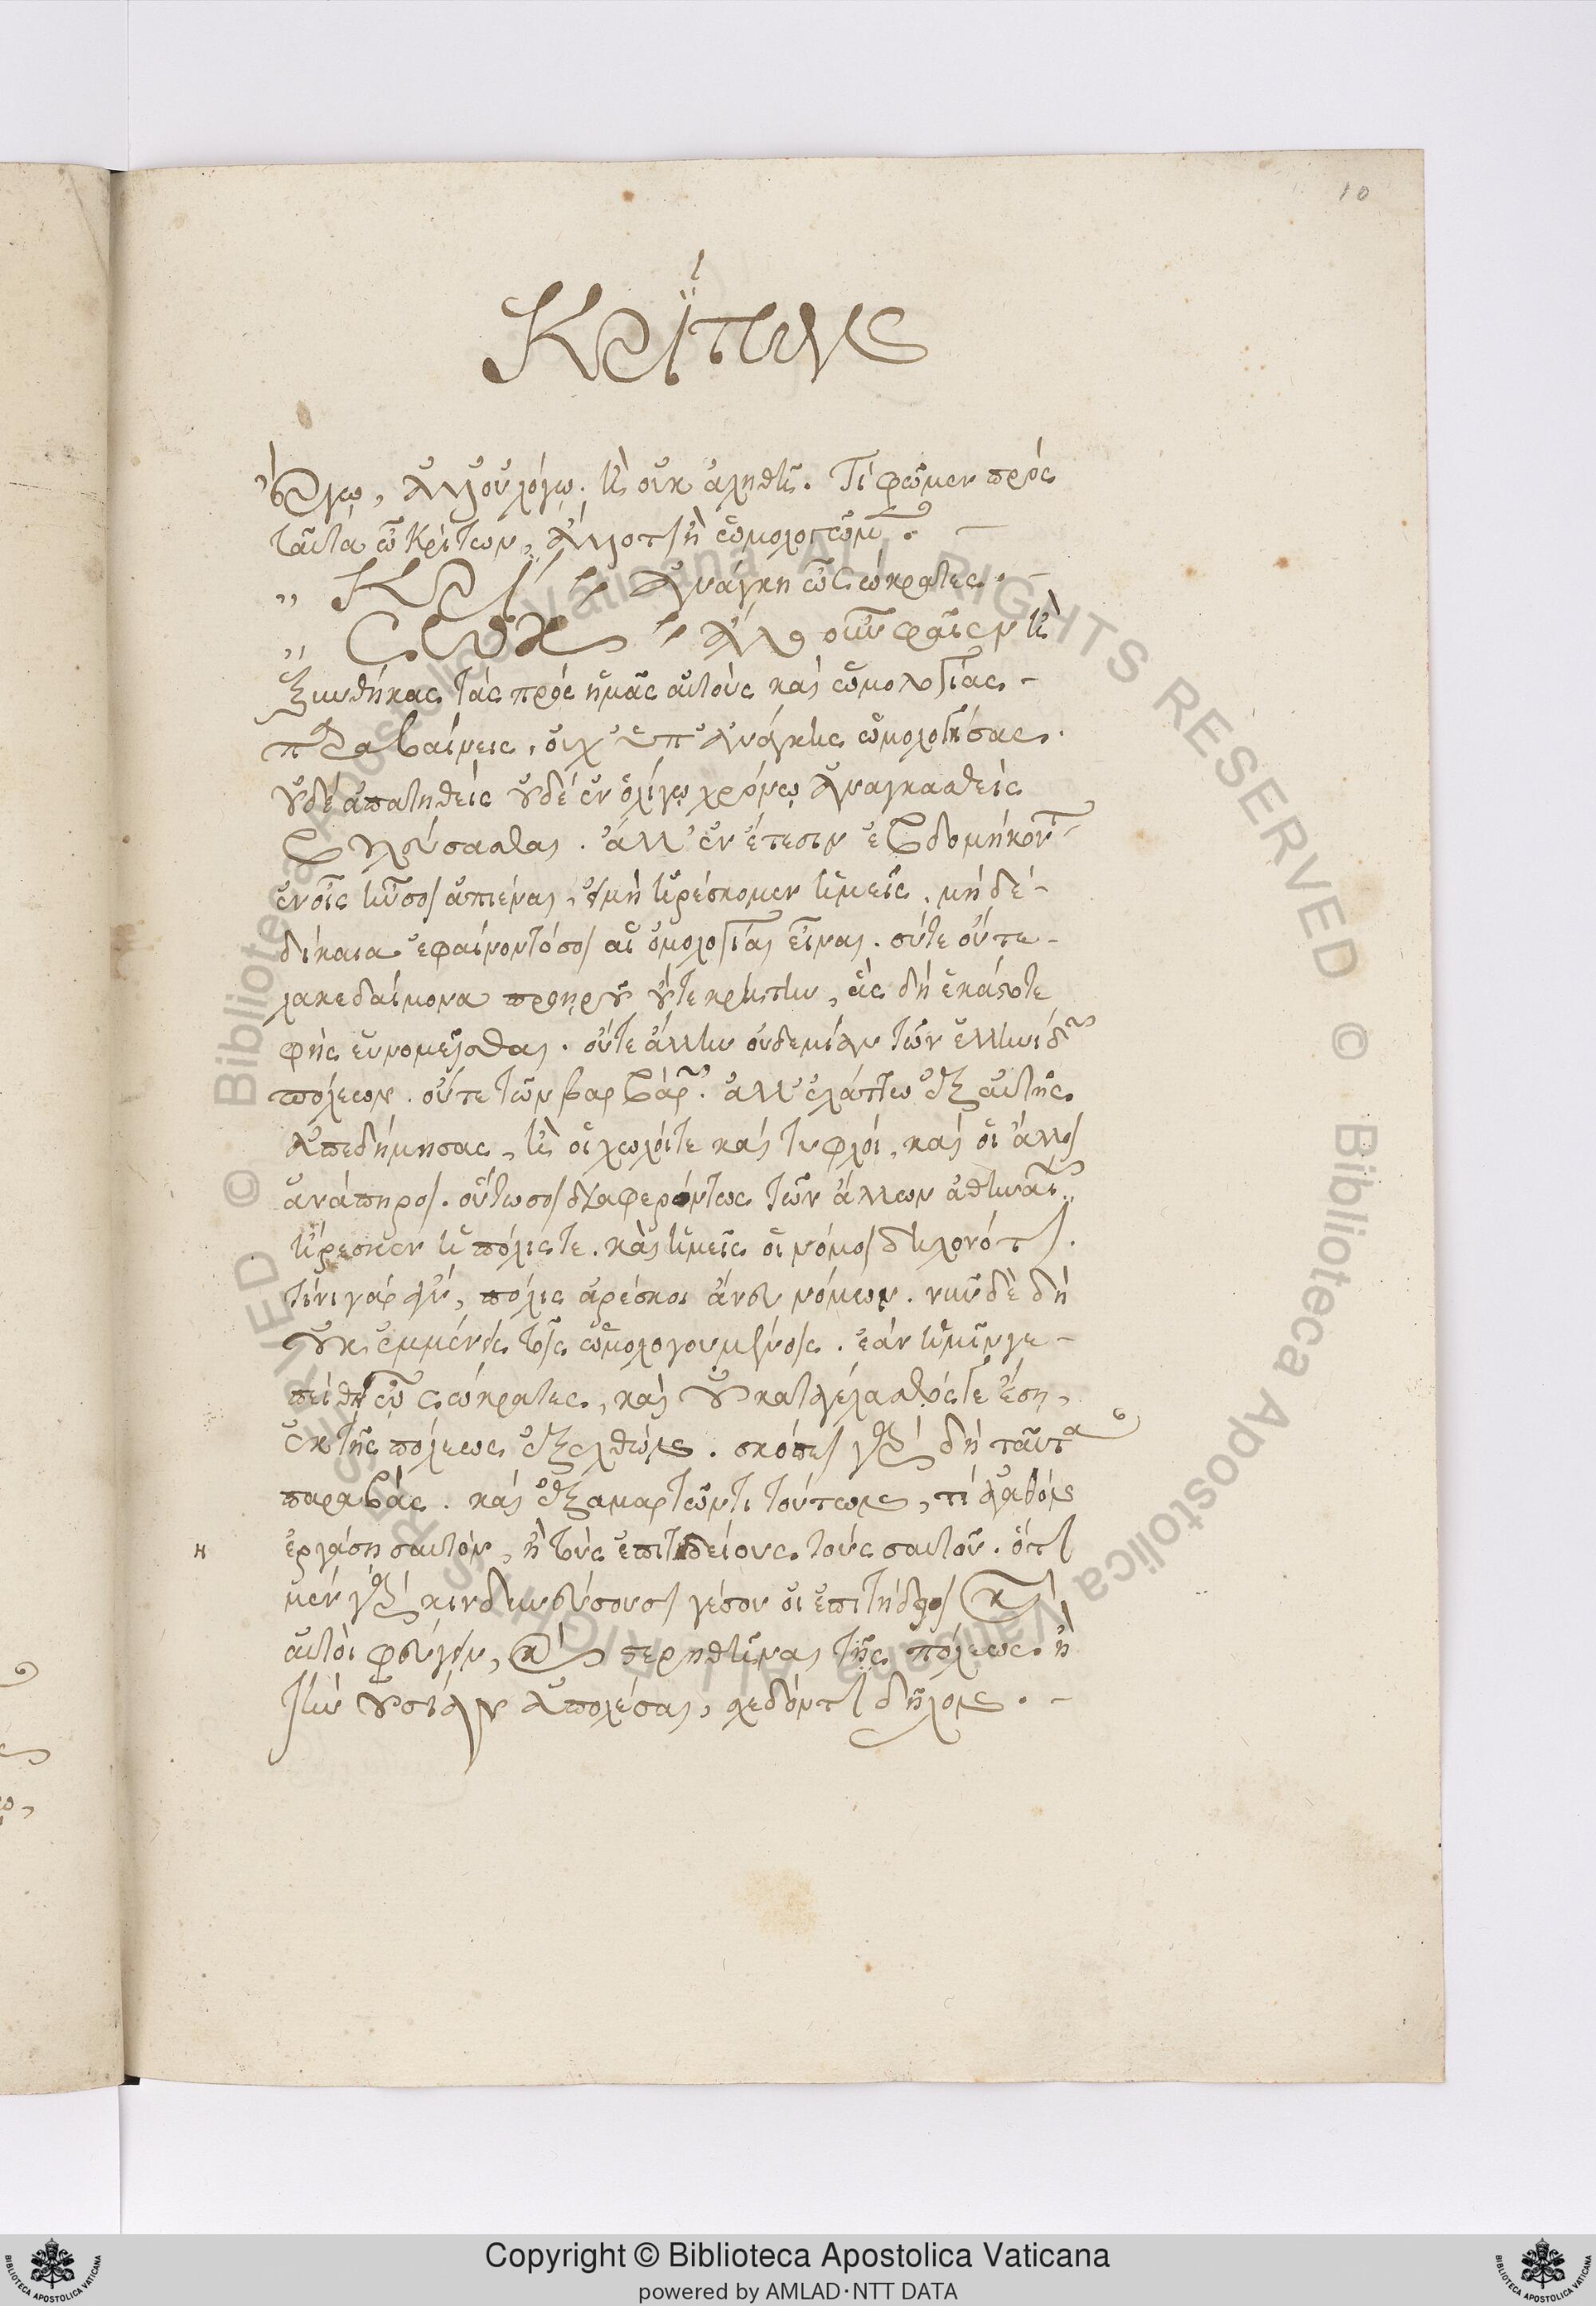 10
Κρίτων
ἔργῳ, ἀλλ' οὐ λόγῳ. ἢ οὐκ ἀληθῆ. Τί φῶμεν πρός
ταῦτα ὦ Κρίτων, ἄλλοτι ἢ ὡμολογῶμεν.
,, ΚΡΙ Ἀνάγκη ὦ Σώκρατες.
,, ΣΩΚ Ἄλλο οὖν φαῖεν ἢ
ξυνθήκας τὰς πρός ἡμᾶς αὐτοὺς καὶ ὡμολογίας
παραβαίνεις, οὐχ ὑπ' ἀνάγκης ὡμολογήσας.
οὐδὲ ἀπατηθεὶς οὐδὲ ἐν ὀλίγῳ χρόνῳ ἀναγκασθεὶς
βουλεύσασθαι. ἀλλ' ἐν ἔτεσιν ἑβδομήκοντα
ἐν οἷς ἦν σοι ἀπιέναι, εἰ μὴ ἠρέσκομεν ἡμεῖς. μὴ δὲ
δίκαια ἐφαίνοντό σοι αἱ ὁμολογίαι εἶναι. σύ τε οὔτε
λακεδαίμονα προῃροῦ οὔτε κρήτην, ἃς δὴ ἑκάστοτε
φῂς εὐνομεῖσθαι. οὔτε ἄλλην οὐδεμίαν τῶν ἑλληνίδων
πόλεων. οὔτε τῶν βαρβάρων. ἀλλ' ἐλάττω ἐξ αὐτῆς
ἀπεδήμησας, ἢ οἱ χωλοί τε καὶ τυφλοί, καὶ οἱ ἄλλοι
ἀνάπηροι. οὕτω σοι διαφερόντως τῶν ἄλλων ἀθηναίων
ἤρεσκεν ἡ πόλις τε. καὶ ἡμεῖς οἱ νόμοι δηλονότι.
τίνι γὰρ ἂν, πόλις ἀρέσκοι ἄνευ νόμων. νῦν δὲ δὴ
οὐκ ἐμμένεις τοῖς ὡμολογουμένοις. ἐὰν ἡμῖν γε
πείθῃ ὦ Σώκρατες, καὶ οὐ καταγέλαστός γε ἔσῃ,
ἐκ τῆς πόλεως ἐξελθών. σκόπει γὰρ δὴ ταῦτα
παραβάς. καὶ ἐξαμαρτῶν τι τούτων, τί ἀγαθὸν
η ἐργάσῃ σαυτόν, ἢ τοὺς ἐπιτηδείους τοὺς σαυτοῦ. ὅτι
μὲν γὰρ κινδυνεύσουσι γέ σου οἱ ἐπιτήδειοι καὶ
αὐτοὶ φεύγειν, καὶ στερηθῆναι τῆς πόλεως ἢ
τὴν οὐσίαν ἀπολέσαι, σχεδόν τι δῆλον.
© Biblioteca Apostolica Vaticana ALL RIGHTS RESERVED
Copyright © Biblioteca Apostolica Vaticana
powered by AMLAD·NTT DATA